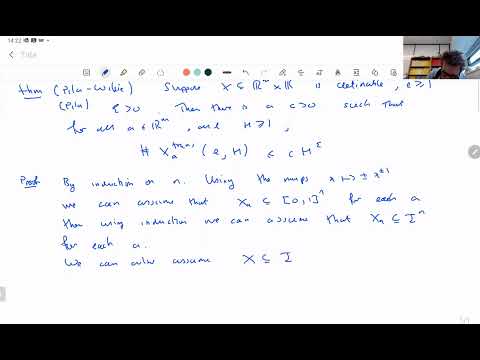 14:22
Title
Thm (Pila-Wilkie) Suppose X ⊆ ℝᵐ × ℝⁿ is definable, e ≥ 1
(Pila) ε > 0. Then there is a c > 0 such that
for all a ∈ ℝᵐ, and H ≥ 1,
# Xₐᵗʳᵃⁿˢ (e, H) ≤ c H^ε
Proof By induction on n. Using the maps x ↦ ± x^±1
we can assume that Xₐ ⊆ [0,1]ⁿ for each a
then using induction we can assume that Xₐ ⊆ Iⁿ
for each a.
We can also assume X ⊆ I